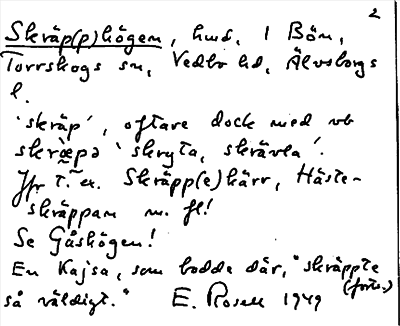 2
Skräp(p)högen, hmd, i Bön,
Torrskogs sn, Vedbo hd, Älvsborgs
l.
'skräp', oftare dock med vb
skræ̰pə 'skryta, skrävla'.
Jfr t. ex. Skräpp(e)kärr, Häste-
skräppan m. fl!
Se Gåshögen!
En Kajsa, som bodde där, "skräppte
så väldigt." (forts.)
E. Rosell 1949